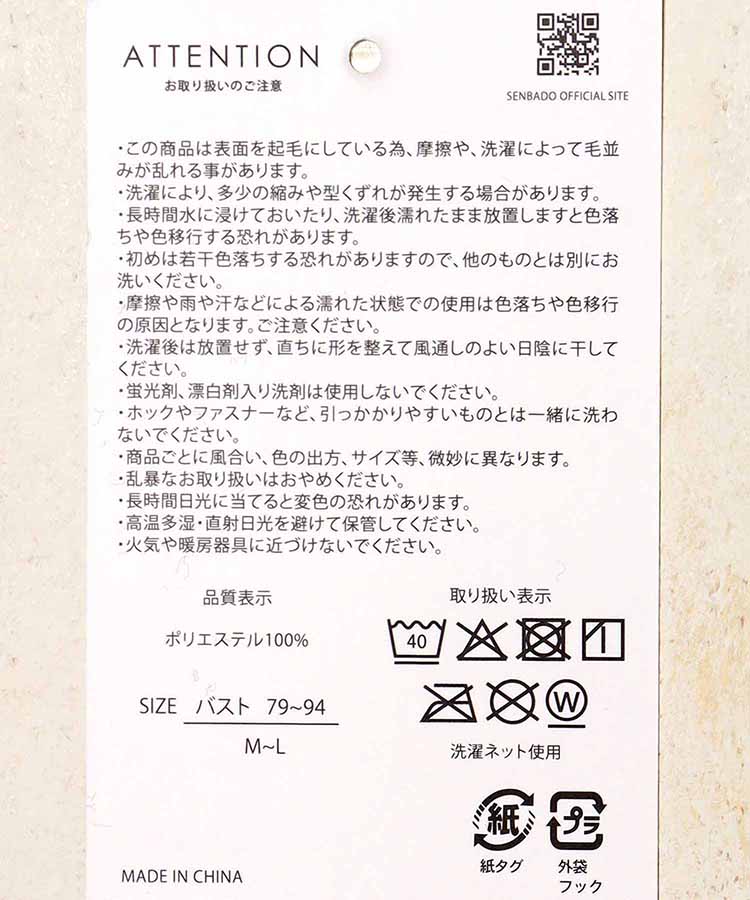 ATTENTION
お取り扱いのご注意
SENBADO OFFICIAL SITE
・この商品は表面を起毛にしている為、摩擦や、洗濯によって毛並
みが乱れる事があります。
・洗濯により、多少の縮みや型くずれが発生する場合があります。
・長時間水に浸けておいたり、洗濯後濡れたまま放置しますと色落
ちや色移行する恐れがあります。
・初めは若干色落ちする恐れがありますので、他のものとは別にお
洗いください。
・摩擦や雨や汗などによる濡れた状態での使用は色落ちや色移行
の原因となります。ご注意ください。
・洗濯後は放置せず、直ちに形を整えて風通しのよい日陰に干して
ください。
・蛍光剤、漂白剤入り洗剤は使用しないでください。
・ホックやファスナーなど、引っかかりやすいものとは一緒に洗わ
ないでください。
・商品ごとに風合い、色の出方、サイズ等、微妙に異なります。
・乱暴なお取り扱いはおやめください。
・長時間日光に当てると変色の恐れがあります。
・高温多湿・直射日光を避けて保管してください。
・火気や暖房器具に近づけないでください。
品質表示
ポリエステル100%
SIZE バスト 79~94
M~L
取り扱い表示
40
W
洗濯ネット使用
紙
紙タグ
プラ
外袋
フック
MADE IN CHINA